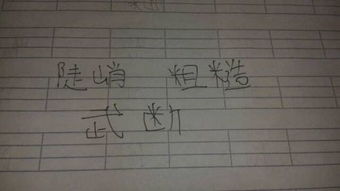 陡峭 粗糙
武断